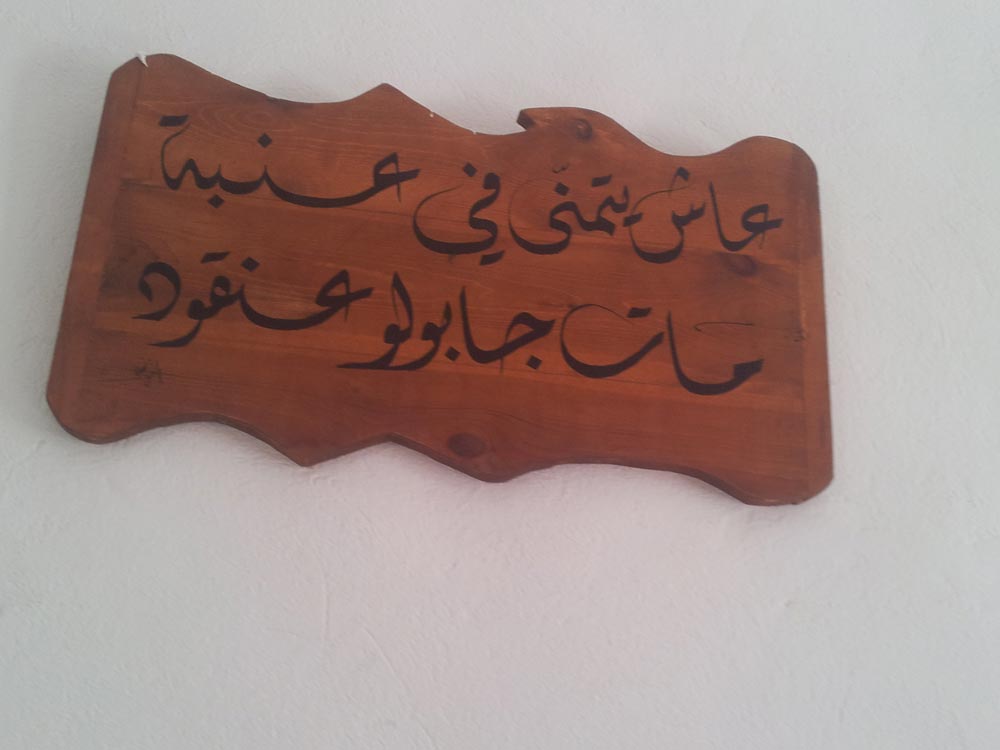 عاش يتمنّى في عنبة
مات جابولو عنقود